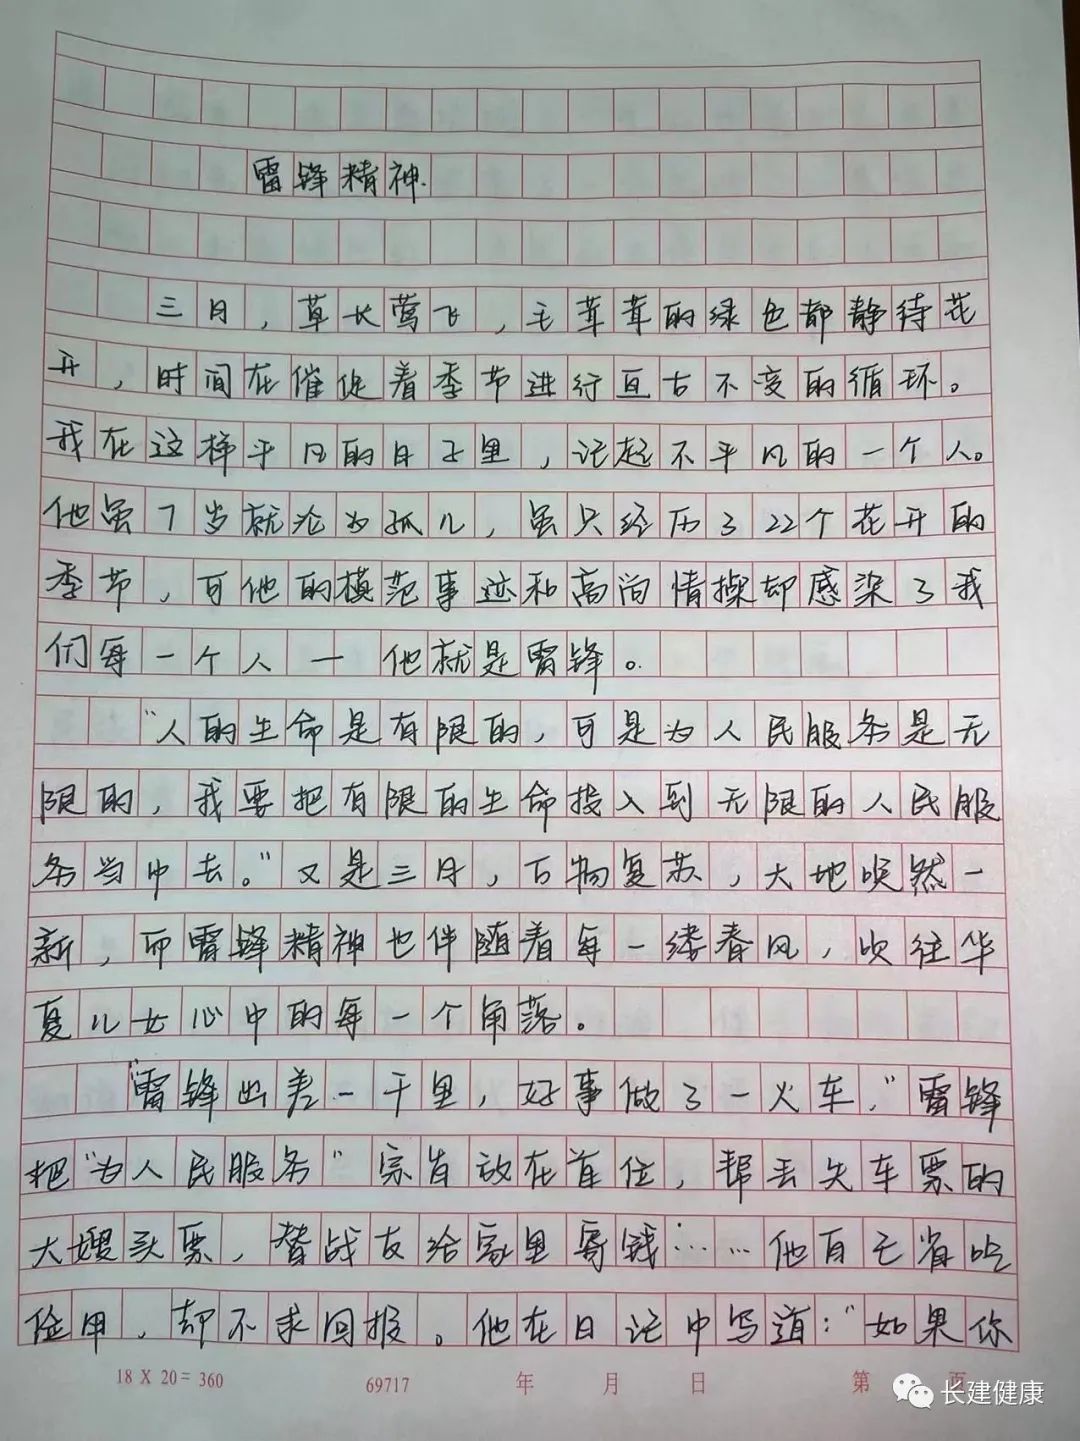 雷锋精神.
三月，草长莺飞，毛茸茸的绿色都静待花
开，时间在催促着季节进行亘古不变的循环。
我在这样平凡的日子里，记起不平凡的一个人。
他虽7岁就沦为孤儿，虽只经历了22个花开的
季节，可他的模范事迹和高尚情操却感染了我
们每一个人 — 他就是雷锋。
“人的生命是有限的，可是为人民服务是无
限的，我要把有限的生命投入到无限的人民服
务当中去。”又是三月，万物复苏，大地焕然一
新，而雷锋精神也伴随着每一缕春风，吹往华
夏儿女心中的每一个角落。
“雷锋出差一千里，好事做了一火车，”雷锋
把“为人民服务”宗旨放在首位，帮丢失车票的
大嫂买票，替战友给家里寄钱……他自己省吃
俭用，却不求回报。他在日记中写道：“如果你
18 X 20 = 360 69717 年 月 日 第 页
长建健康